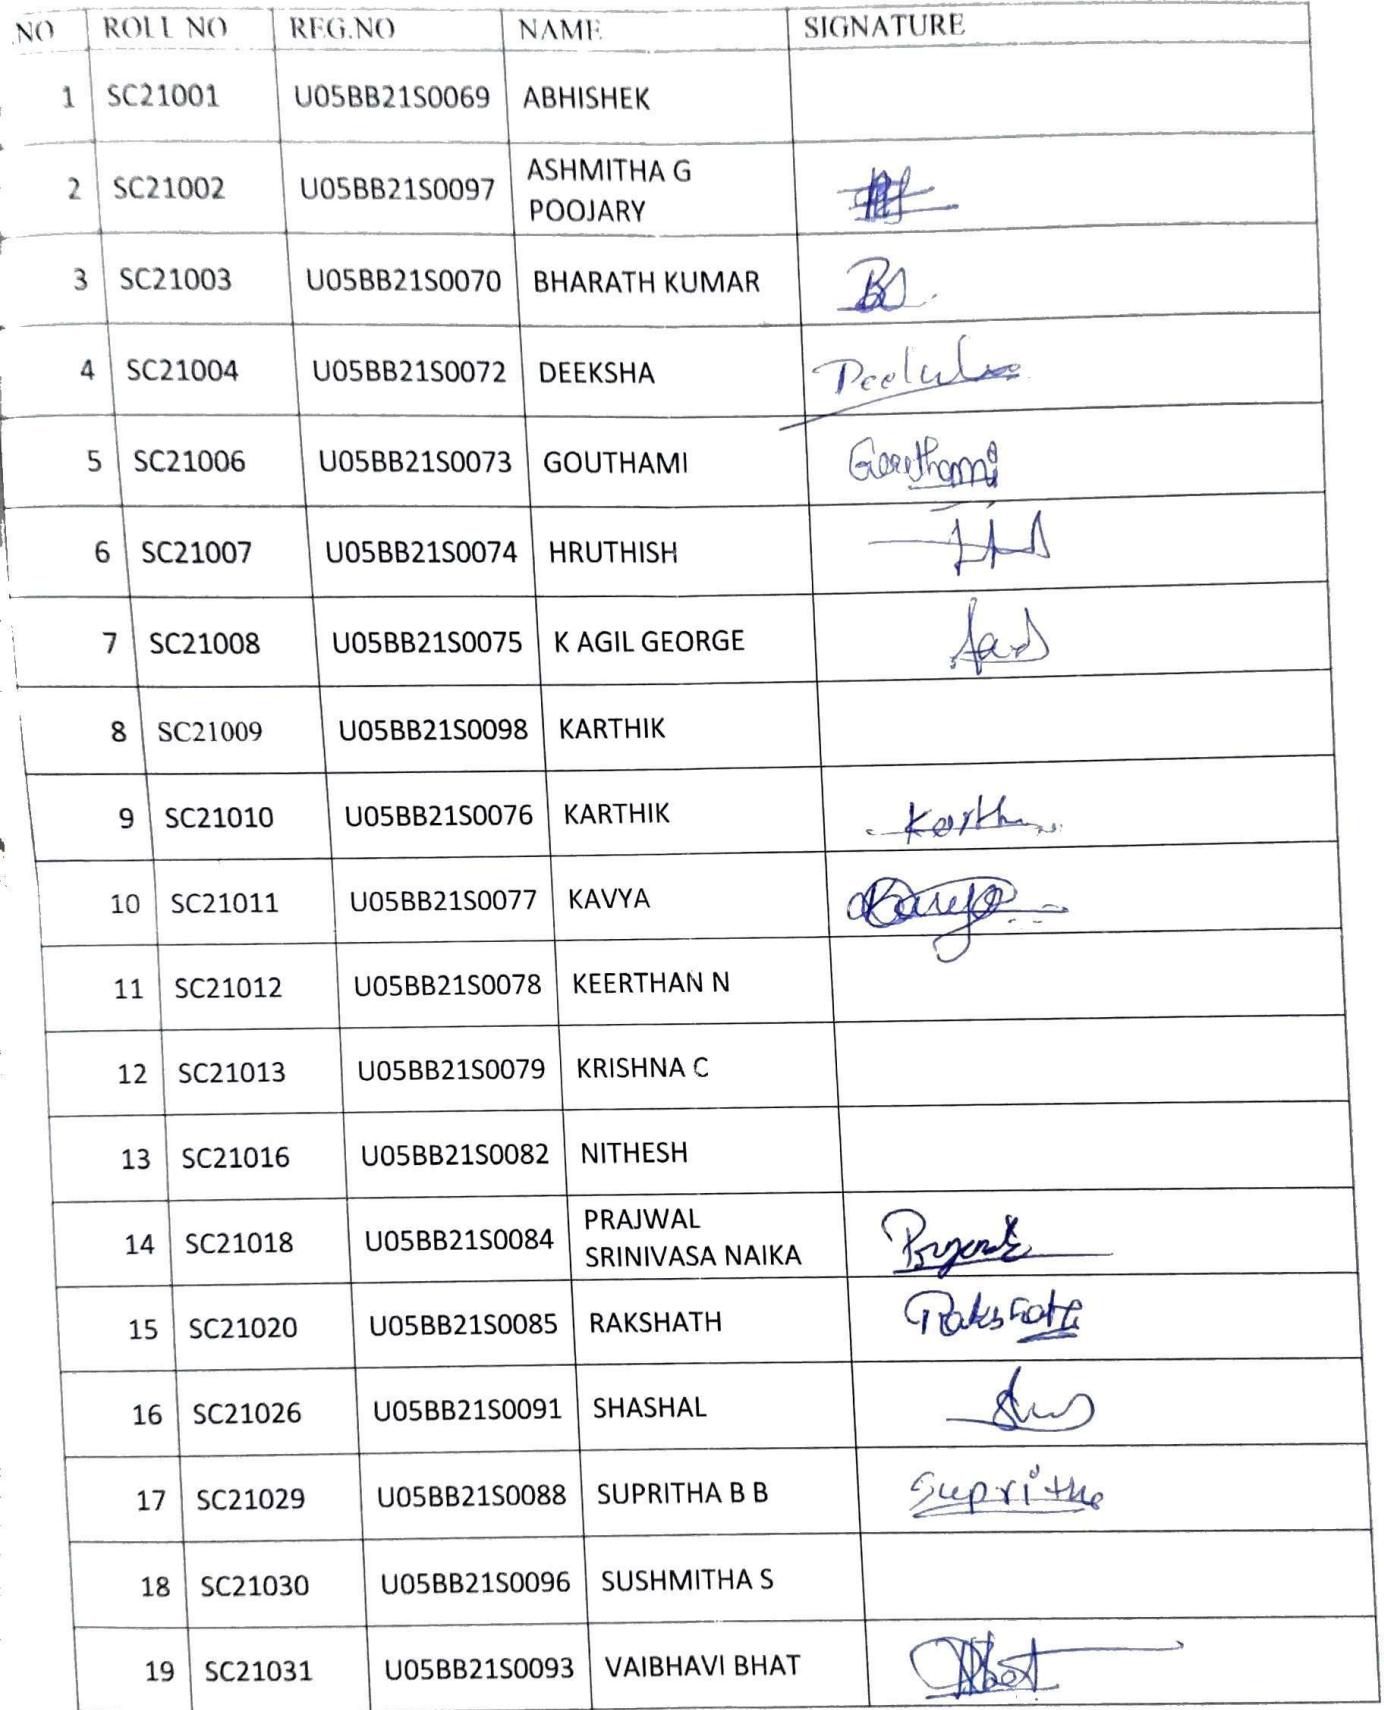 NO ROLL NO REG.NO NAME SIGNATURE
1 SC21001 U05BB21S0069 ABHISHEK
2 SC21002 U05BB21S0097 ASHMITHA G
POOJARY
3 SC21003 U05BB21S0070 BHARATH KUMAR
4 SC21004 U05BB21S0072 DEEKSHA
5 SC21006 U05BB21S0073 GOUTHAMI Gouthami
6 SC21007 U05BB21S0074 HRUTHISH
7 SC21008 U05BB21S0075 K AGIL GEORGE
8 SC21009 U05BB21S0098 KARTHIK
9 SC21010 U05BB21S0076 KARTHIK
10 SC21011 U05BB21S0077 KAVYA
11 SC21012 U05BB21S0078 KEERTHAN N
12 SC21013 U05BB21S0079 KRISHNA C
13 SC21016 U05BB21S0082 NITHESH
14 SC21018 U05BB21S0084 PRAJWAL
SRINIVASA NAIKA
15 SC21020 U05BB21S0085 RAKSHATH Rakshath
16 SC21026 U05BB21S0091 SHASHAL
17 SC21029 U05BB21S0088 SUPRITHA B B Supritha
18 SC21030 U05BB21S0096 SUSHMITHA S
19 SC21031 U05BB21S0093 VAIBHAVI BHAT